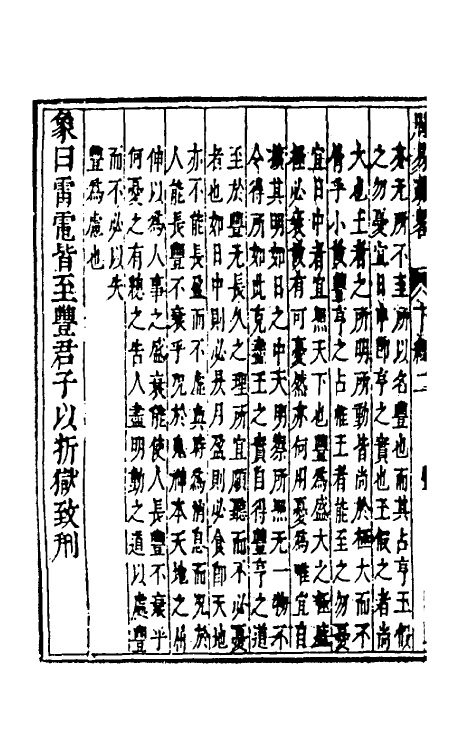 亦无所不至所以名豐也而其占亨王假
之勿憂宜日中即亨之實也王假之者尚
大也王者之所明所動皆尚於極大而不
屑乎小故豐亨之占惟王者能至之勿憂
宜日中者宜照天下也豐為盛大之極盛
極必衰故有可憂然亦何用憂為唯宜自
猿其明如日之中天明察所照无一物不
令得所如此克盡王之實自得豐亨之道
至於豐无長久之理所宜順聽而不必憂
者也如日中則必昃月盈則必食即天地
亦不能長盈而不虛與時為消息而况於
人能長豐不衰乎况於鬼神本天地之所
伸以為人事之盛衰能使人長豐不衰乎
何憂之有總之吿人盡明動之道以處豐
而不必以失
豐為慮也
象曰雷電皆至豐君子以折獄致刑